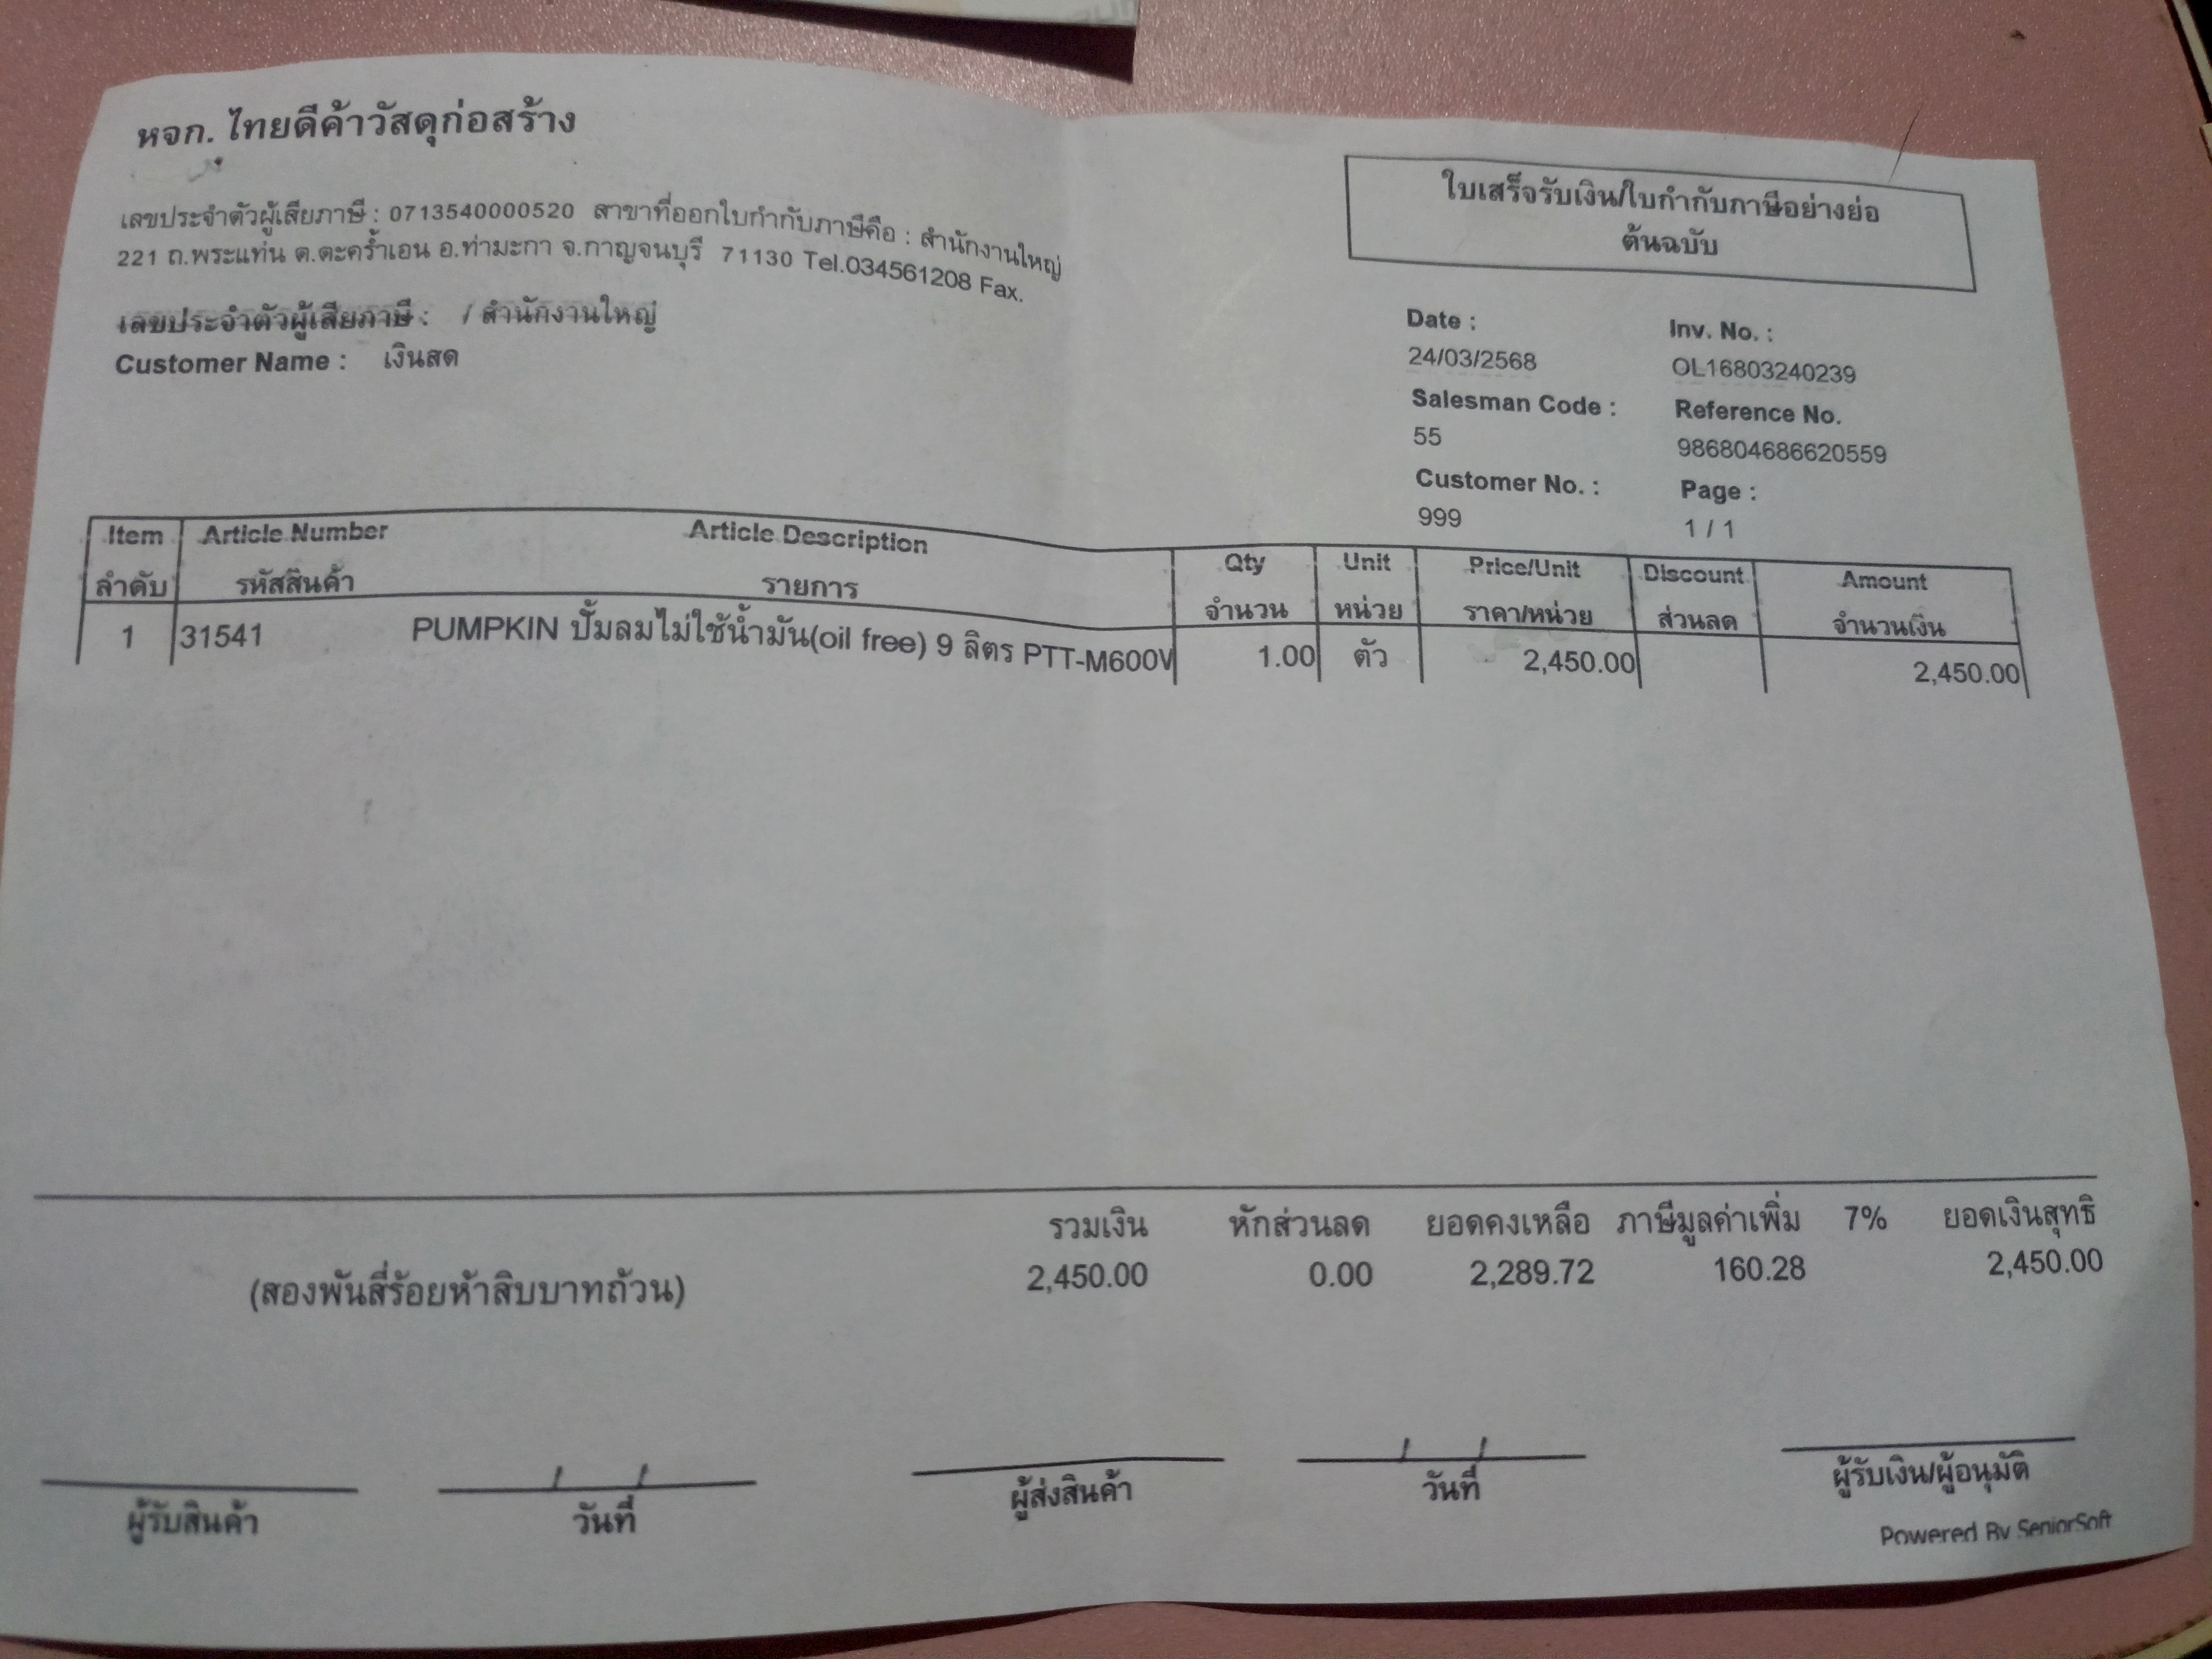 หจก. ไทยดีค้าวัสดุก่อสร้าง
เลขประจำตัวผู้เสียภาษี : 0713540000520 สาขาที่ออกใบกำกับภาษีคือ : สำนักงานใหญ่
221 ถ.พระแท่น ต.ตะคร้ำเอน อ.ท่ามะกา จ.กาญจนบุรี 71130 Tel.034561208 Fax.
เลขประจำตัวผู้เสียภาษี : / สำนักงานใหญ่
Customer Name : เงินสด
ใบเสร็จรับเงิน/ใบกำกับภาษีอย่างย่อ
ต้นฉบับ
Date : Inv. No. :
24/03/2568 OL16803240239
Salesman Code : Reference No.
55 986804686620559
Customer No. : Page :
999 1 / 1
Item Article Number Article Description Qty Unit Price/Unit Discount Amount
ลำดับ รหัสสินค้า รายการ จำนวน หน่วย ราคา/หน่วย ส่วนลด จำนวนเงิน
1 31541 PUMPKIN ปั๊มลมไม่ใช้น้ำมัน(oil free) 9 ลิตร PTT-M600V 1.00 ตัว 2,450.00 2,450.00
รวมเงิน หักส่วนลด ยอดคงเหลือ ภาษีมูลค่าเพิ่ม 7% ยอดเงินสุทธิ
(สองพันสี่ร้อยห้าสิบบาทถ้วน) 2,450.00 0.00 2,289.72 160.28 2,450.00
/ / / /
ผู้รับสินค้า วันที่ ผู้ส่งสินค้า วันที่ ผู้รับเงิน/ผู้อนุมัติ
Powered By SeniorSoft